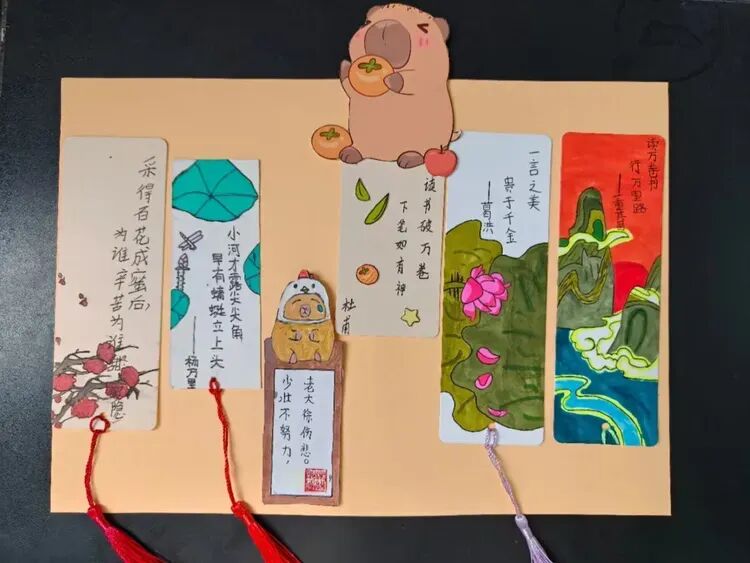 采得百花成蜜后,
为谁辛苦为谁甜
小河才露尖尖角
早有蜻蜓立上头
——杨万里
少壮不努力,
老大徐伤悲。
读书破万卷
下笔如有神
杜甫
一言之美
贵于千金
——葛洪
读万卷书
行万里路